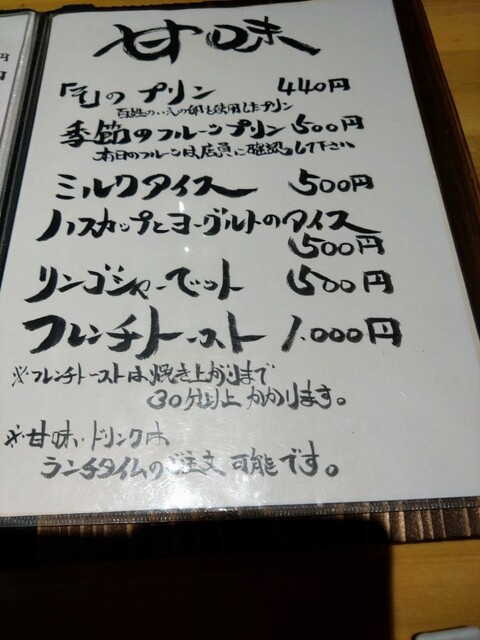 甘味
「そ」のプリン 440円
百姓のいぶきの卵を使用したプリン
季節のフルーツプリン 500円
本日のフルーツは店員に確認して下さい
ミルクアイス 500円
ハスカップとヨーグルトのアイス
500円
リンゴシャーベット 500円
フレンチトースト 1.000円
※フレンチトーストは焼き上がりまで
30分以上かかります。
※甘味、ドリンクは
ランチタイムのご注文可能です。
円
円